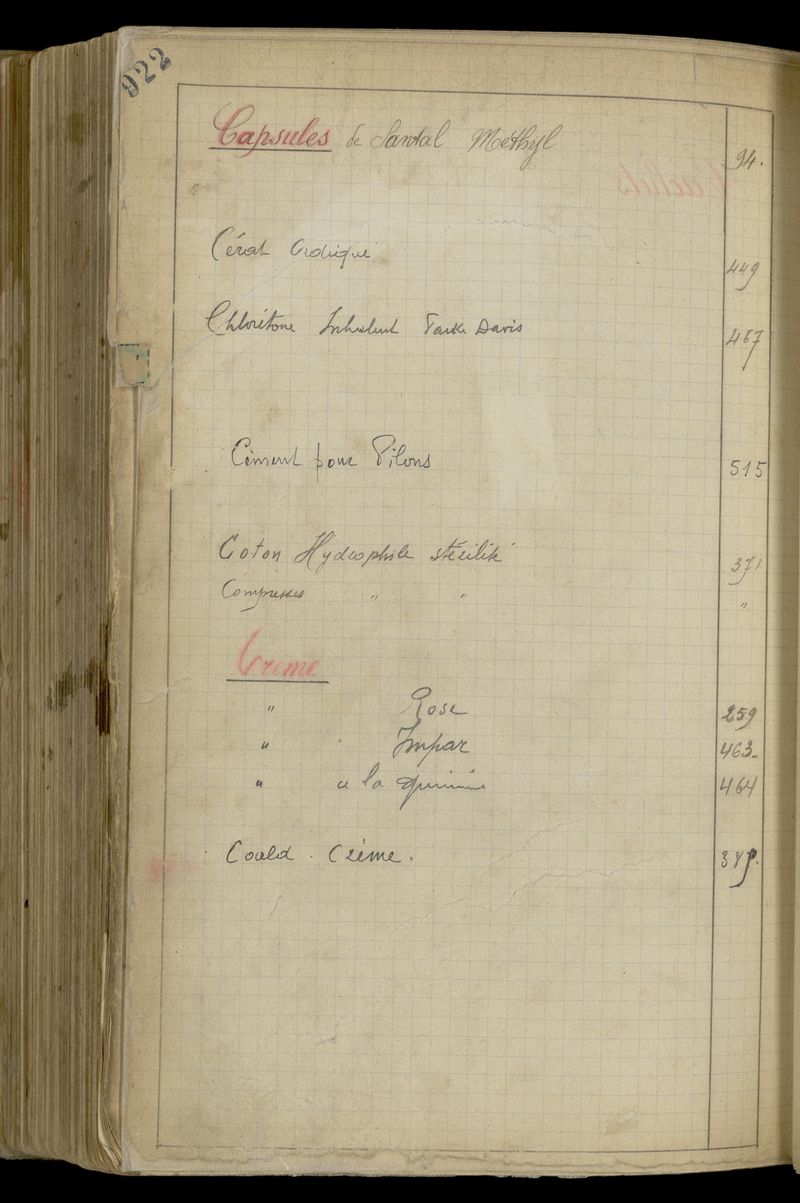 922
Capsules de Santal Méthyl 94.
Cérat 449
Chlorétone Inhalent Parke Davis 457
Ciment pour Pilons 515
Coton Hydrophile stérilisé 371
Compresses " " "
Crème
" Rose 259
" Impar 463.
" a la quinine 464
Coald . Crème . 387.